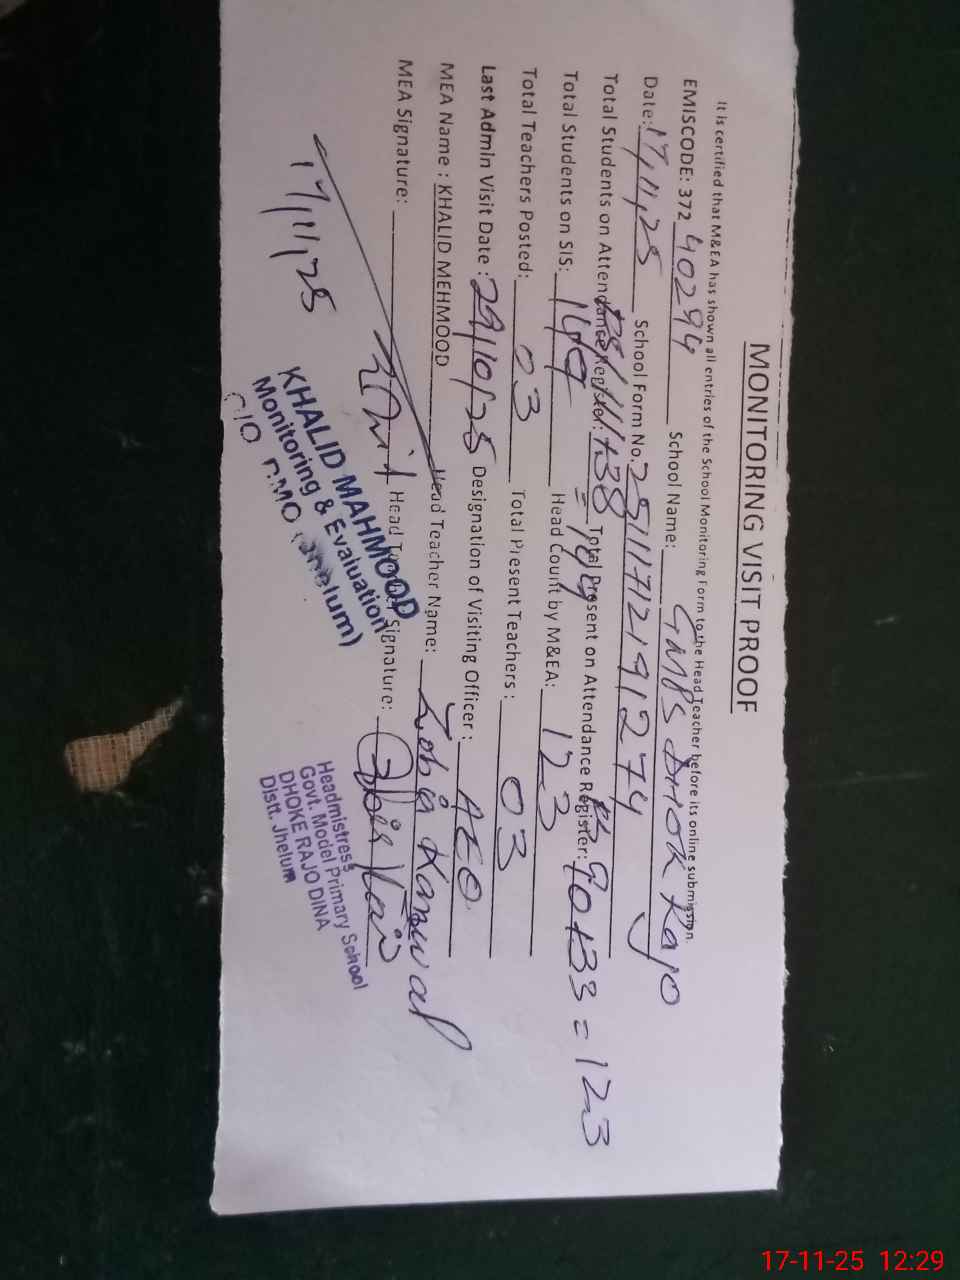 MONITORING VISIT PROOF
It is certified that M&EA has shown all entries of the School Monitoring Form to the Head Teacher before its online submission.
EMISCODE: 372 40294 School Name: GMPS DHOK Rajo
Date: 17/11/25 School Form No. 25111712191274
Total Students on Attendance Register: 111+38 = 149 Total Present on Attendance Register: 90+33 = 123
Total Students on SIS: Head Count by M&EA: 123
Total Teachers Posted: 03 Total Present Teachers: 03
Last Admin Visit Date: 29/10/25 Designation of Visiting Officer: AEO
MEA Name : KHALID MEHMOOD Head Teacher Name: Zobia Kanwal
MEA Signature: Head Teacher Signature:
17/11/25
KHALID MAHMOOD
Monitoring & Evaluation
C/O DMO (Jhelum)
Headmistress
Govt. Model Primary School
DHOKE RAJO DINA
Distt. Jhelum
17-11-25 12:29